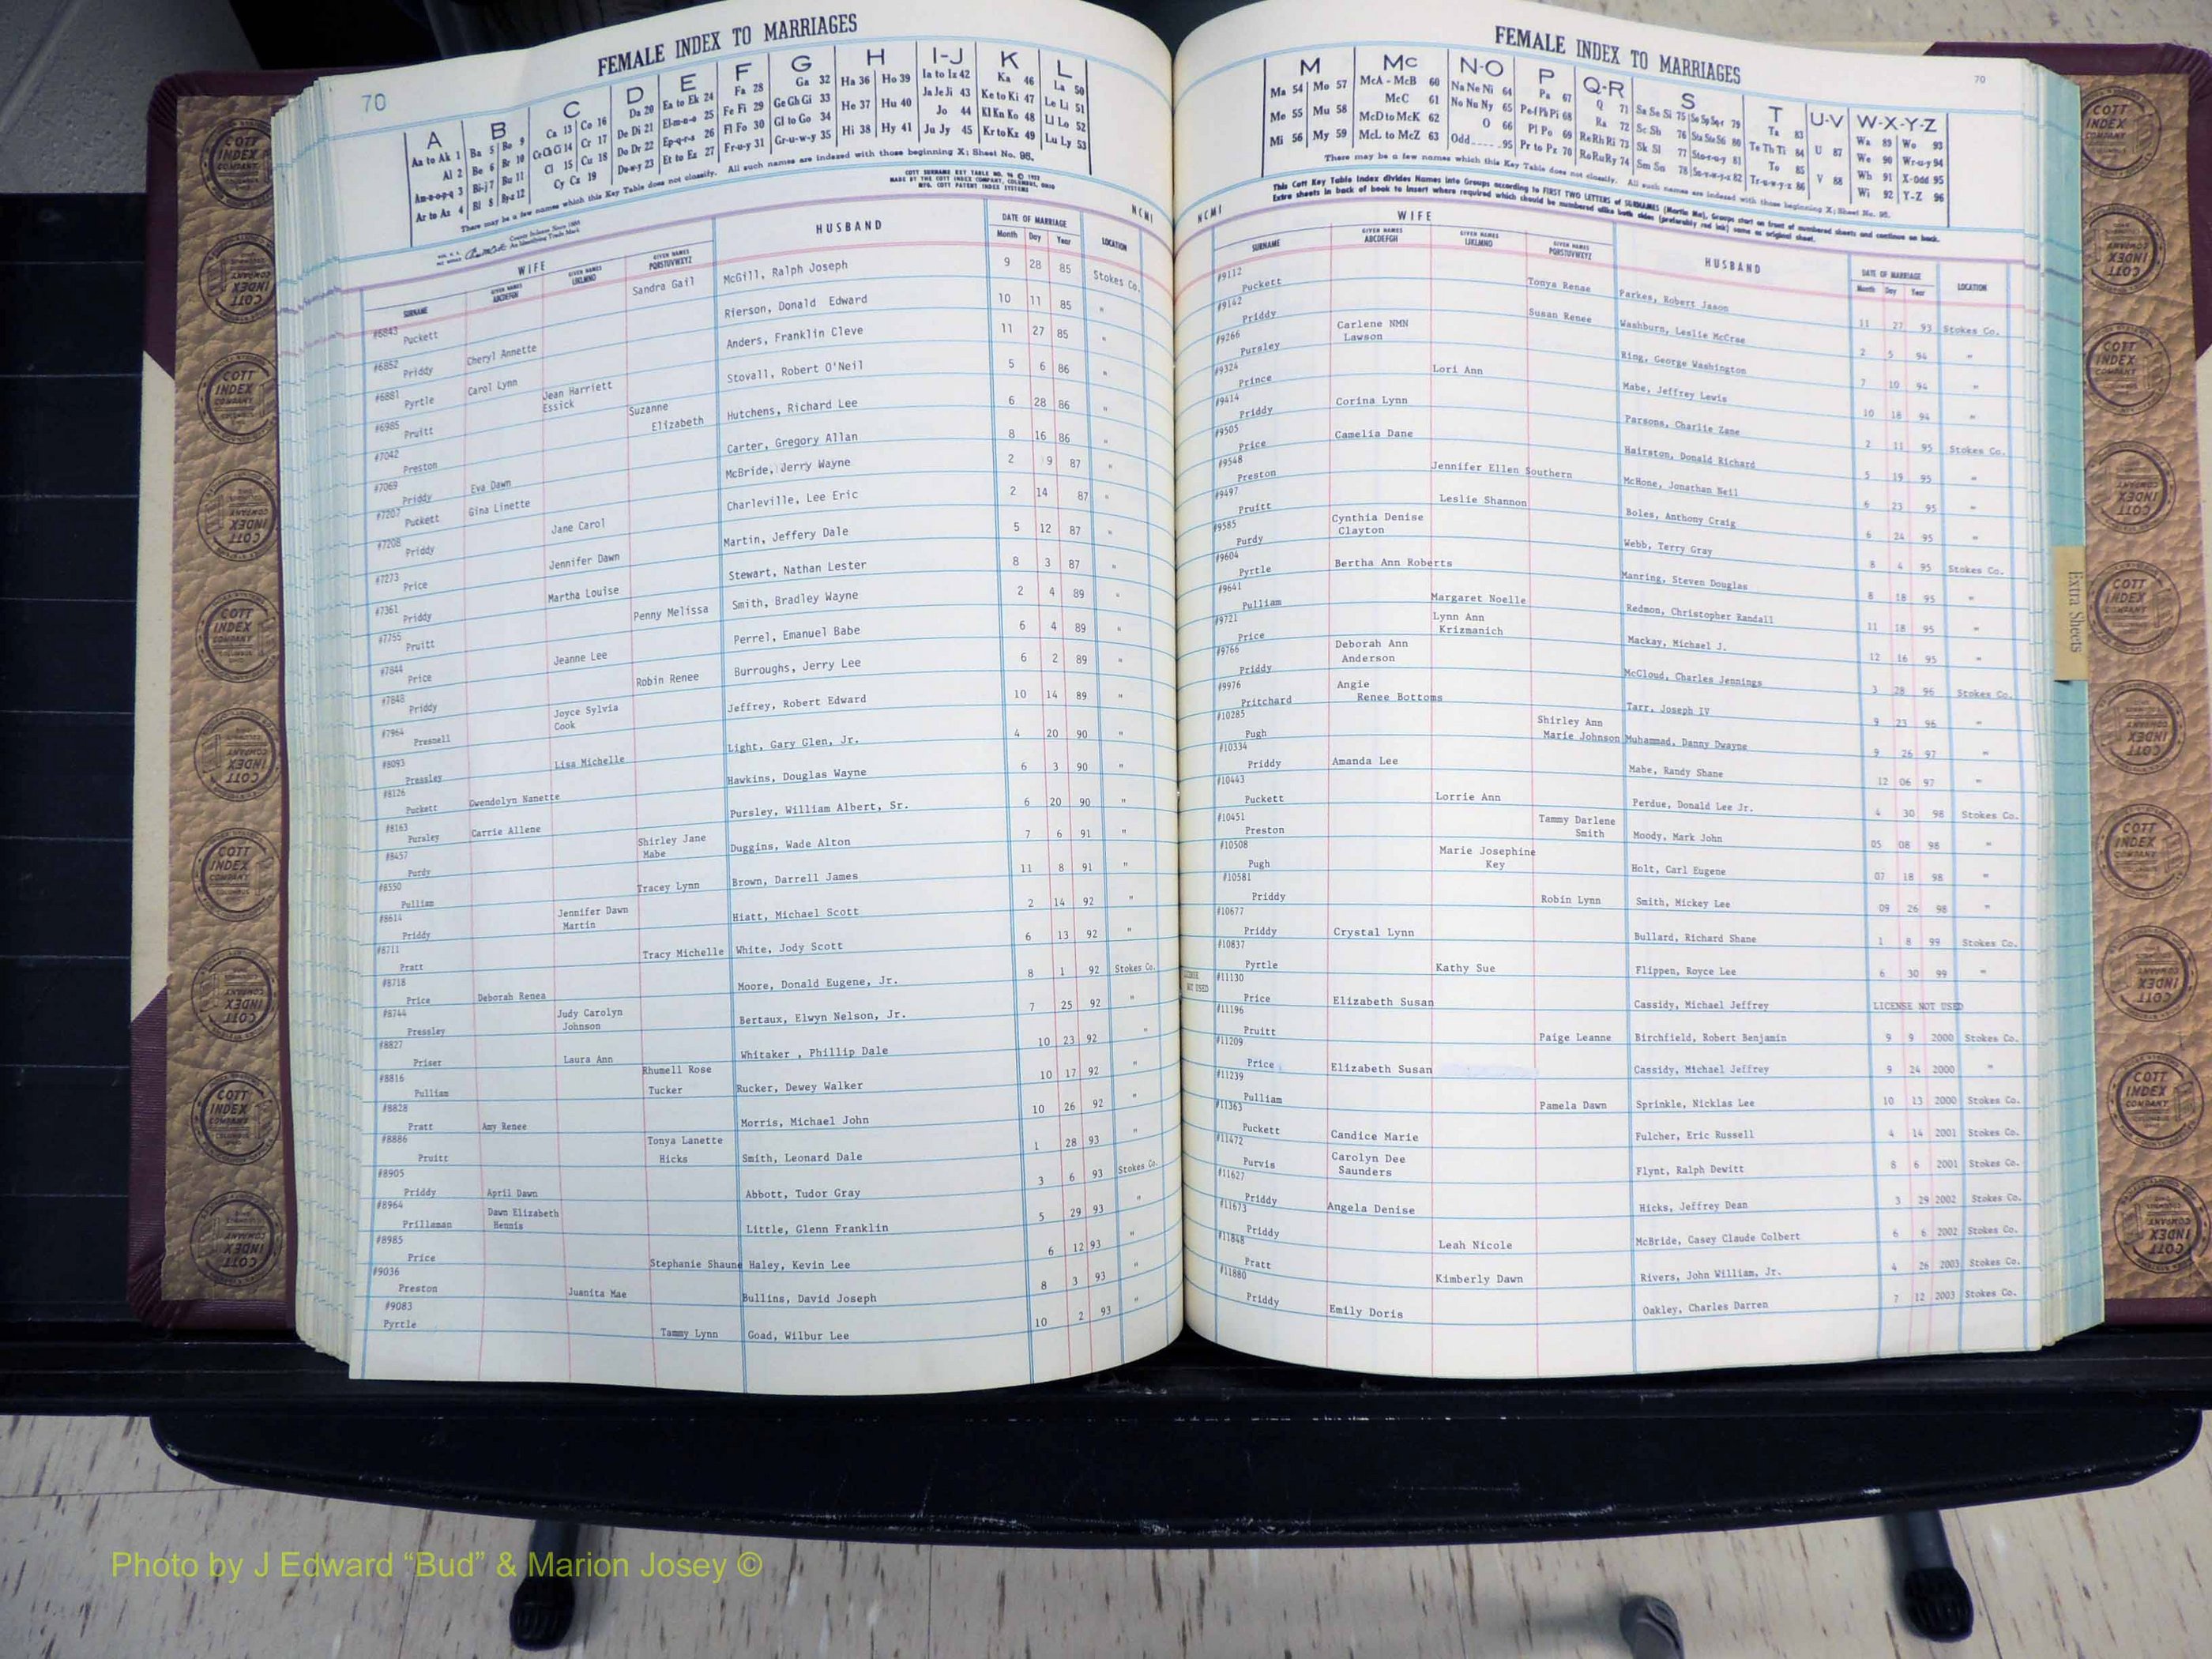 FEMALE INDEX TO MARRIAGES
70
A B C D E F G H I-J K L
Aa to Ak 1 Ba 5 Bo 9 Ca 13 Co 16 Da 20 Ea to Ek 24 Fa 28 Ga 32 Ha 36 Ho 39 Ia to Iz 42 Ka 46 La 50
Al 2 Be 6 Br 10 Ce Ch Ci 14 Cr 17 De Di 21 El-m-n-o 25 Fe Fi 29 Ge Gh Gi 33 He 37 Hu 40 Ja Je Ji 43 Ke to Ki 47 Le Li 51
An-o-p-q 3 Bi-j 7 Bu 11 Cl 15 Cu 18 Do Dr 22 Ep-q-r-s 26 Fl Fo 30 Gl to Go 34 Hi 38 Hy 41 Jo 44 Kl Kn Ko 48 Ll Lo 52
Ar to Az 4 Bl 8 By-z 12 Cy Cz 19 Du-w-y 23 Et to Ez 27 Fr-u-y 31 Gr-u-w-y 35 Ju Jy 45 Kr to Kz 49 Lu Ly 53
There may be a few names which this Key Table does not classify. All such names are indexed with those beginning X; Sheet No. 95.
COTT SURNAME KEY TABLE NO. 96 © 1922
MADE BY THE COTT INDEX COMPANY, COLUMBUS, OHIO
MFG. COTT PATENT INDEX SYSTEMS
NCMI
WIFE HUSBAND DATE OF MARRIAGE LOCATION
SURNAME GIVEN NAMES ABCDEFGH GIVEN NAMES IJKLMNO GIVEN NAMES PQRSTUVWXYZ Month Day Year
#6843 Puckett Sandra Gail McGill, Ralph Joseph 9 28 85 Stokes Co.
#6852 Priddy Cheryl Annette Rierson, Donald Edward 10 11 85 "
#6881 Pyrtle Carol Lynn Anders, Franklin Cleve 11 27 85 "
#6985 Pruitt Jean Harriett Essick Stovall, Robert O'Neil 5 6 86 "
#7042 Preston Suzanne Elizabeth Hutchens, Richard Lee 6 28 86 "
#7069 Priddy Eva Dawn Carter, Gregory Allan 8 16 86 "
#7207 Puckett Gina Linette McBride, Jerry Wayne 2 9 87
#7208 Priddy Jane Carol Charleville, Lee Eric 2 14 87 "
#7273 Price Jennifer Dawn Martin, Jeffery Dale 5 12 87 "
#7361 Priddy Martha Louise Stewart, Nathan Lester 8 3 87 "
#7755 Pruitt Penny Melissa Smith, Bradley Wayne 2 4 89 "
#7844 Price Jeanne Lee Perrel, Emanuel Babe 6 4 89 "
#7848 Priddy Robin Renee Burroughs, Jerry Lee 6 2 89 "
#7964 Presnell Joyce Sylvia Cook Jeffrey, Robert Edward 10 14 89 "
#8093 Pressley Lisa Michelle Light, Gary Glen, Jr. 4 20 90 "
#8126 Puckett Gwendolyn Nanette Hawkins, Douglas Wayne 6 3 90 "
#8163 Pursley Carrie Allene Pursley, William Albert, Sr. 6 20 90 "
#8457 Purdy Shirley Jane Mabe Duggins, Wade Alton 7 6 91 "
#8550 Pulliam Tracey Lynn Brown, Darrell James 11 8 91 "
#8614 Priddy Jennifer Dawn Martin Hiatt, Michael Scott 2 14 92 "
#8711 Pratt Tracy Michelle White, Jody Scott 6 13 92 "
#8718 Price Deborah Renea Moore, Donald Eugene, Jr. 8 1 92 Stokes Co.
#8744 Pressley Judy Carolyn Johnson Bertaux, Elwyn Nelson, Jr. 7 25 92 "
#8827 Priser Laura Ann Whitaker , Phillip Dale 10 23 92 "
#8816 Pulliam Rhumell Rose Tucker Rucker, Dewey Walker 10 17 92 "
#8828 Pratt Amy Renee Morris, Michael John 10 26 92 "
#8886 Pruitt Tonya Lanette Hicks Smith, Leonard Dale 1 28 93 "
#8905 Priddy April Dawn Abbott, Tudor Gray 3 6 93 Stokes Co.
#8964 Prillaman Dawn Elizabeth Hennis Little, Glenn Franklin 5 29 93 "
#8985 Price Stephanie Shaune Haley, Kevin Lee 6 12 93 "
#9036 Preston Juanita Mae Bullins, David Joseph 8 3 93 "
#9083 Pyrtle Tammy Lynn Goad, Wilbur Lee 10 2 93 "
FEMALE INDEX TO MARRIAGES
70
M Mc N-O P Q-R S T U-V W-X-Y-Z
Ma 54 Mo 57 McA - McB 60 Na Ne Ni 64 Pa 67 Q 71 Sa Se Si 75 So Sp Sq-r 79 Ta 83 U 87 Wa 89 Wo 93
Me 55 Mu 58 McC 61 No Nu Ny 65 Pe-f Ph Pi 68 Ra 72 Sc Sh 76 Sta Ste Sti 80 Te Th Ti 84 V 88 We 90 Wr-u-y 94
Mi 56 My 59 McD to McK 62 O 66 Pl Po 69 Re Rh Ri 73 Sk Sl 77 Sto-r-u-y 81 To 85 Wh 91 X-Odd 95
McL to McZ 63 Odd 95 Pr to Pz 70 Ro Ru Ry 74 Sm Sn 78 Su-v-w-y-z 82 Tr-u-w-y-z 86 Wi 92 Y-Z 96
There may be a few names which this Key Table does not classify. All such names are indexed with those beginning X; Sheet No. 95.
This Cott Key Table Index divides Names into Groups according to FIRST TWO LETTERS of SURNAMES (Martin Ma). Groups start on front of numbered sheets and continue on back.
Extra sheets in back of book to insert where required which should be numbered alike both sides (preferably red ink) same as original sheet.
NCMI
WIFE HUSBAND DATE OF MARRIAGE LOCATION
SURNAME GIVEN NAMES ABCDEFGH GIVEN NAMES IJKLMNO GIVEN NAMES PQRSTUVWXYZ Month Day Year
#9112 Puckett Tonya Renae Parkes, Robert Jason 11 27 93 Stokes Co.
#9142 Priddy Susan Renee Washburn, Leslie McCrae 2 5 94 "
#9266 Pursley Carlene NMN Lawson Ring, George Washington 7 10 94 "
#9324 Prince Lori Ann Mabe, Jeffrey Lewis 10 18 94 "
#9414 Priddy Corina Lynn Parsons, Charlie Zane 2 11 95 Stokes Co.
#9505 Price Camelia Dane Hairston, Donald Richard 5 19 95 "
#9548 Preston Jennifer Ellen Southern McHone, Jonathan Neil 6 23 95 "
#9497 Pruitt Leslie Shannon Boles, Anthony Craig 6 24 95 "
#9585 Purdy Cynthia Denise Clayton Webb, Terry Gray 8 4 95 Stokes Co.
#9604 Pyrtle Bertha Ann Roberts Manring, Steven Douglas 8 18 95 "
#9641 Pulliam Margaret Noelle Redmon, Christopher Randall 11 18 95 "
#9721 Price Lynn Ann Krizmanich Mackay, Michael J. 12 16 95 "
#9766 Priddy Deborah Ann Anderson McCloud, Charles Jennings 3 28 96 Stokes Co.
#9976 Pritchard Angie Renee Bottoms Tarr, Joseph IV 9 23 96 "
#10285 Pugh Shirley Ann Marie Johnson Muhammad, Danny Dwayne 9 26 97 "
#10334 Priddy Amanda Lee Mabe, Randy Shane 12 06 97 "
#10443 Puckett Lorrie Ann Perdue, Donald Lee Jr. 4 30 98 Stokes Co.
#10451 Preston Tammy Darlene Smith Moody, Mark John 05 08 98 "
#10508 Pugh Marie Josephine Key Holt, Carl Eugene 07 18 98 "
#10581 Priddy Robin Lynn Smith, Mickey Lee 09 26 98 "
#10677 Priddy Crystal Lynn Bullard, Richard Shane 1 8 99 Stokes Co.
#10837 Pyrtle Kathy Sue Flippen, Royce Lee 6 30 99 "
LICENSE NOT USED #11130 Price Elizabeth Susan Cassidy, Michael Jeffrey LICENSE NOT USED
#11196 Pruitt Paige Leanne Birchfield, Robert Benjamin 9 9 2000 Stokes Co.
#11209 Price Elizabeth Susan Cassidy, Michael Jeffrey 9 24 2000 "
#11239 Pulliam Pamela Dawn Sprinkle, Nicklas Lee 10 13 2000 Stokes Co.
#11363 Puckett Candice Marie Fulcher, Eric Russell 4 14 2001 Stokes Co.
#11472 Purvis Carolyn Dee Saunders Flynt, Ralph Dewitt 8 6 2001 Stokes Co.
#11627 Priddy Angela Denise Hicks, Jeffrey Dean 3 29 2002 Stokes Co.
#11673 Priddy Leah Nicole McBride, Casey Claude Colbert 6 6 2002 Stokes Co.
#11848 Pratt Kimberly Dawn Rivers, John William, Jr. 4 26 2003 Stokes Co.
#11880 Priddy Emily Doris Oakley, Charles Darren 7 12 2003 Stokes Co.
Extra Sheets
COTT INDEX COMPANY
Photo by J Edward “Bud” & Marion Josey ©